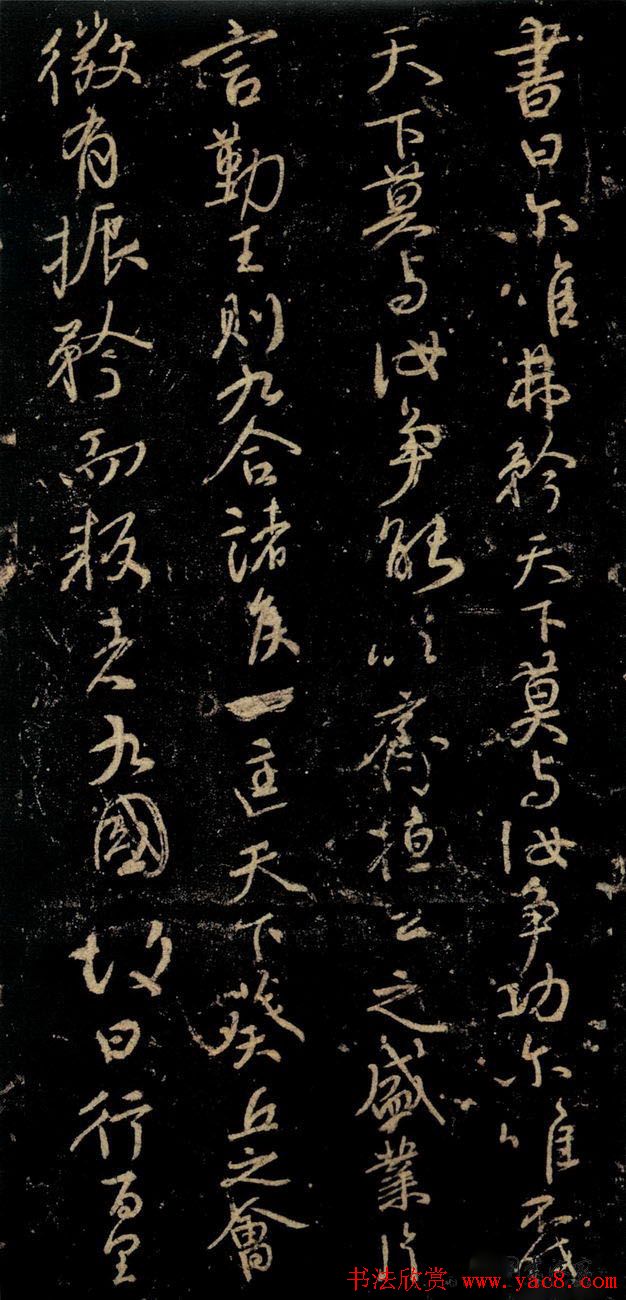 書曰尒唯弗矜天下莫与汝争功尒唯不伐
天下莫与汝争能以齊桓公之盛業片
言勤王則九合諸侯一匡天下葵丘之會
微有振矜而叛者九國故曰行百里
书法欣赏 www.yac8.com